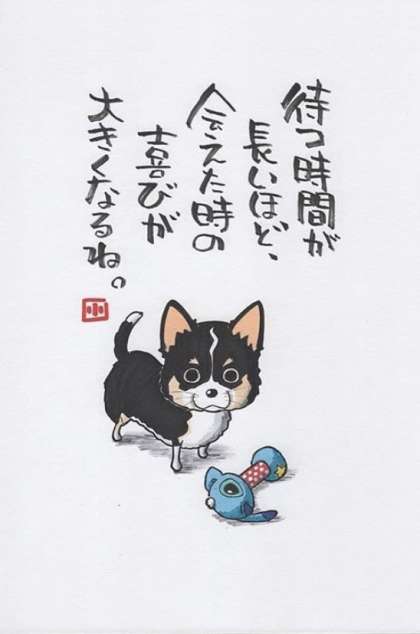 待つ時間が
長いほど、
会えた時の
喜びが
大きくなるね。